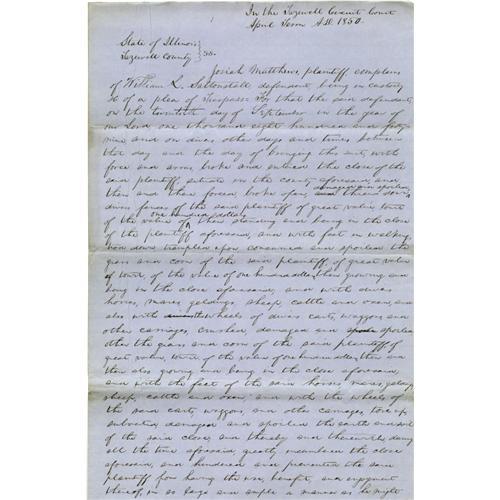 In the Tazewell Circuit Court
April Term A.D. 1850.
State of Illinois }
Tazewell County } SS.
Josiah Matthews, plaintiff, complains
of William L. Saltonstall defendant, being in custody
&c of a plea of Trespass: For that the said defendant
on the twentieth day of September in the year of
our Lord one thousand eight hundred and forty
nine and on divers other days and times between
that day and the day of bringing this suit, with
force and arms, broke and entered the close of the
said plaintiff, situate in the county aforesaid and
then and there forced broke open, damaged and spoiled
divers fences of the said plaintiff of great value, towit
of the value of one hundred dollars then standing and being in the close
of the plaintiff aforesaid, and with feet in walking,
trod down trampled upon consumed and spoiled the
grass and corn of the said plaintiff, of great value
to wit, of the value of one hundred dollars, then growing and
being in the close aforesaid, and with divers
horses, mares, geldings, sheep, cattle and oxen, and
also with the wheels of divers carts, waggons and
other carriages, crushed, damaged and spoiled
other the grass and corn of the said plaintiff of
great value, towit of the value of one hundred dollars, then and
there also growing and being in the close aforesaid,
and with the feet of the said horses, mares, geldings,
sheep, cattle and oxen and with the wheels of
the said carts, waggons, and other carriages, tore up
subverted, damaged and spoiled the earth and soil
of the said close, and thereby and therewith, during
all the time aforesaid, greatly incumbered the close
aforesaid, and hindered and prevented the said
plaintiff from having the use, benefit, and enjoyment
thereof, in so large and ample a manner as he might